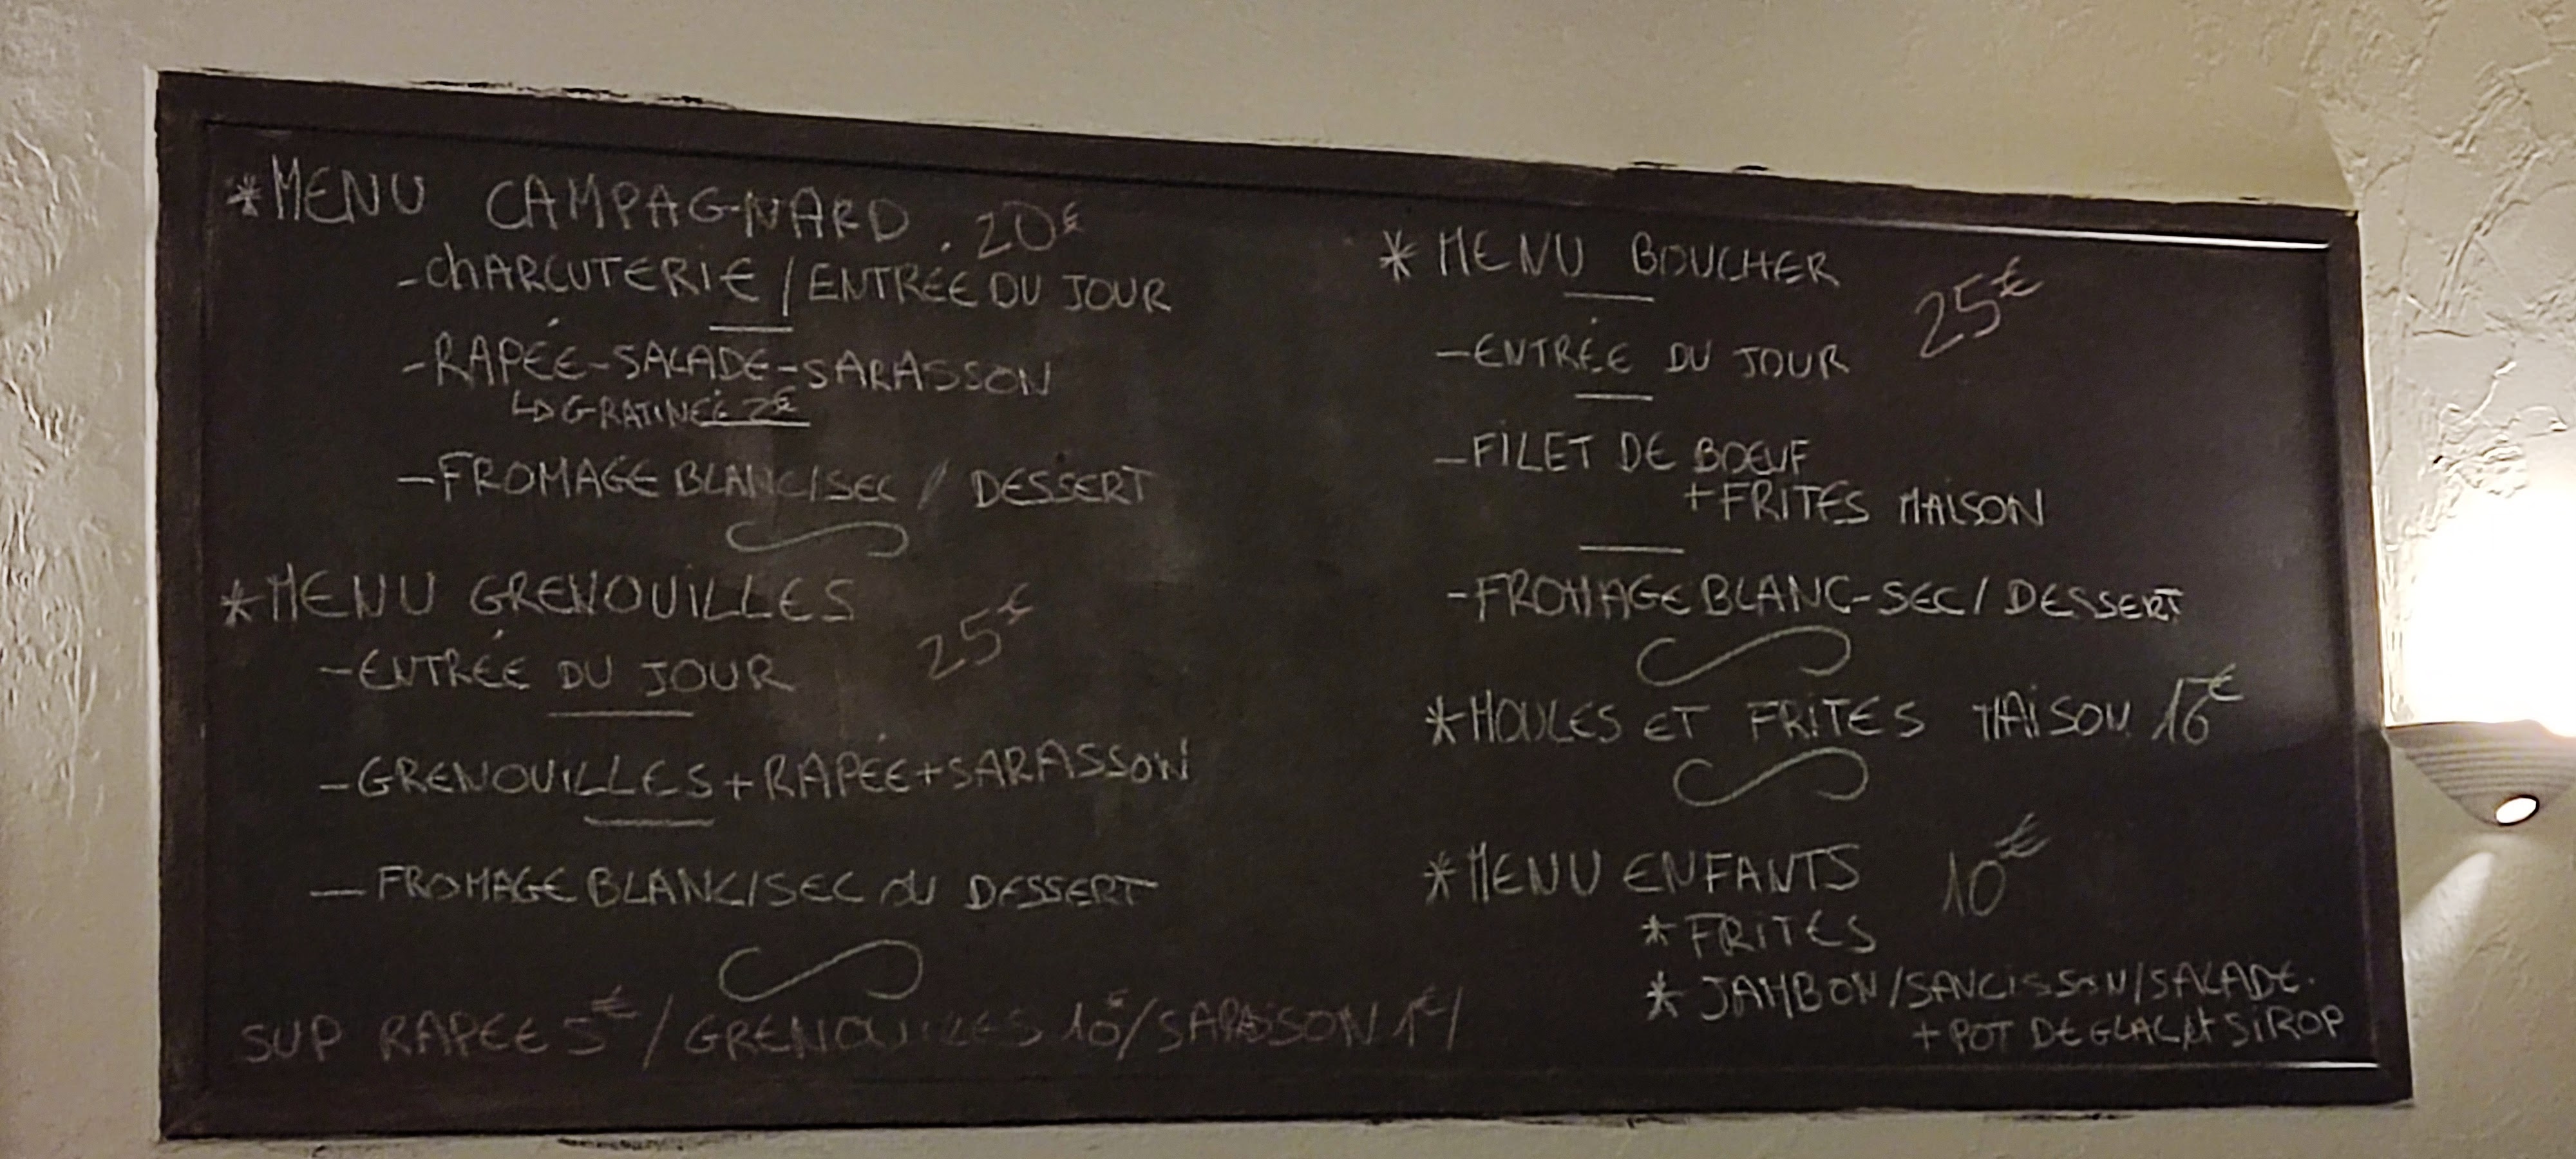 *MENU CAMPAGNARD . 20€
-CHARCUTERIE / ENTRÉE DU JOUR
-RAPÉE-SALADE-SARASSON
↳GRATINÉE 2€
-FROMAGE BLANC/SEC / DESSERT
*MENU GRENOUILLES 25€
-ENTRÉE DU JOUR
-GRENOUILLES+RAPÉE+SARASSON
-FROMAGE BLANC/SEC OU DESSERT
SUP RAPEE 5€ / GRENOUILLES 10€/SARASSON 1€/
* MENU BOUCHER 25€
-ENTRÉE DU JOUR
-FILET DE BOEUF
+FRITES MAISON
-FROMAGE BLANC-SEC/ DESSERT
*MOULES ET FRITES MAISON 16€
*MENU ENFANTS 10€
*FRITES
* JAMBON/SAUCISSON/SALADE.
+ POT DE GLACE et SIROP